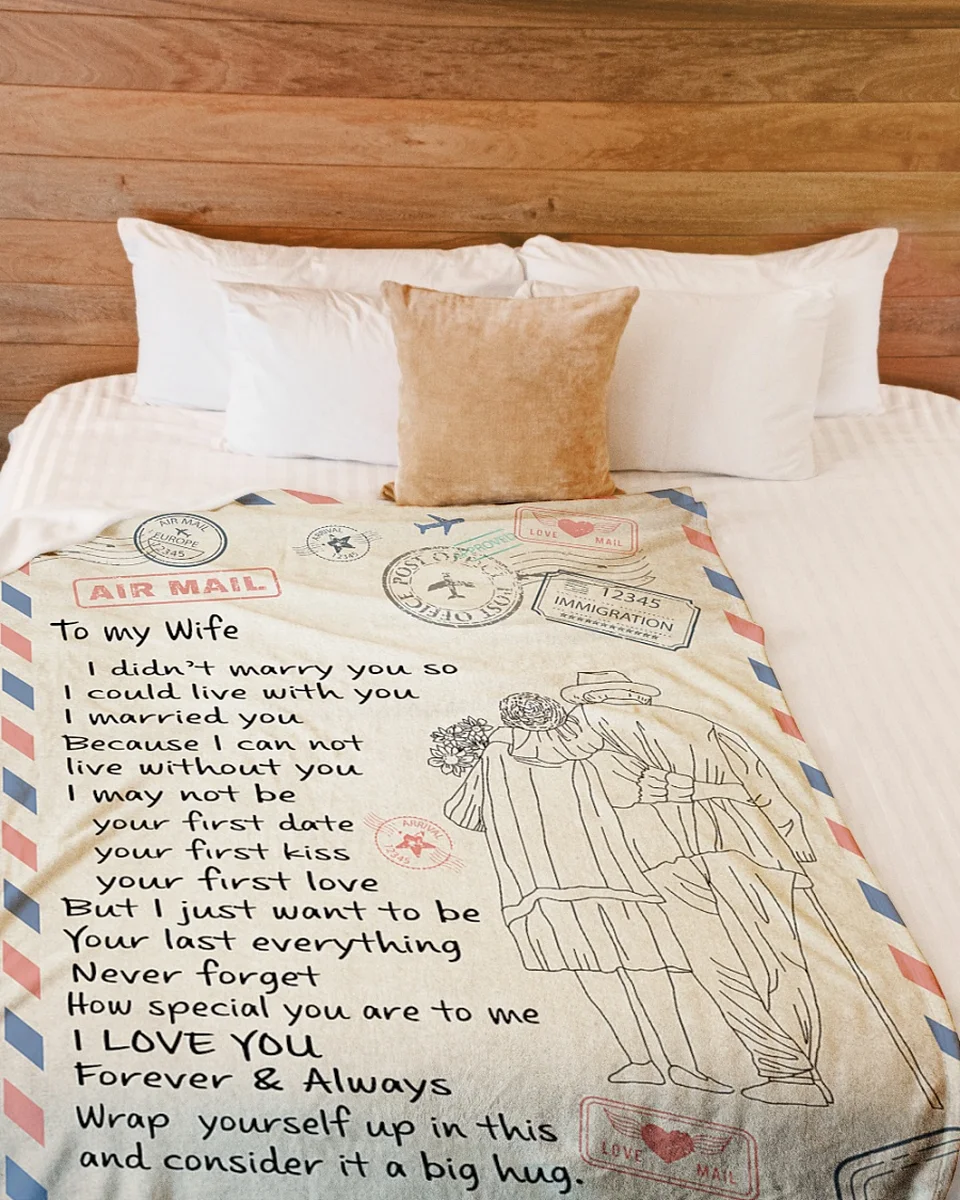 AIR MAIL
EUROPE
12345
ARRIVAL
12345
LOVE MAIL
POST OFFICE
POST OFFICE
12345
IMMIGRATION
AIR MAIL
To my Wife
I didn't marry you so
I could live with you
I married you
Because I can not
live without you
I may not be
your first date
your first kiss
your first love
ARRIVAL
12345
But I just want to be
Your last everything
Never forget
How special you are to me
I LOVE YOU
Forever & Always
Wrap yourself up in this
and consider it a big hug.
LOVE MAIL